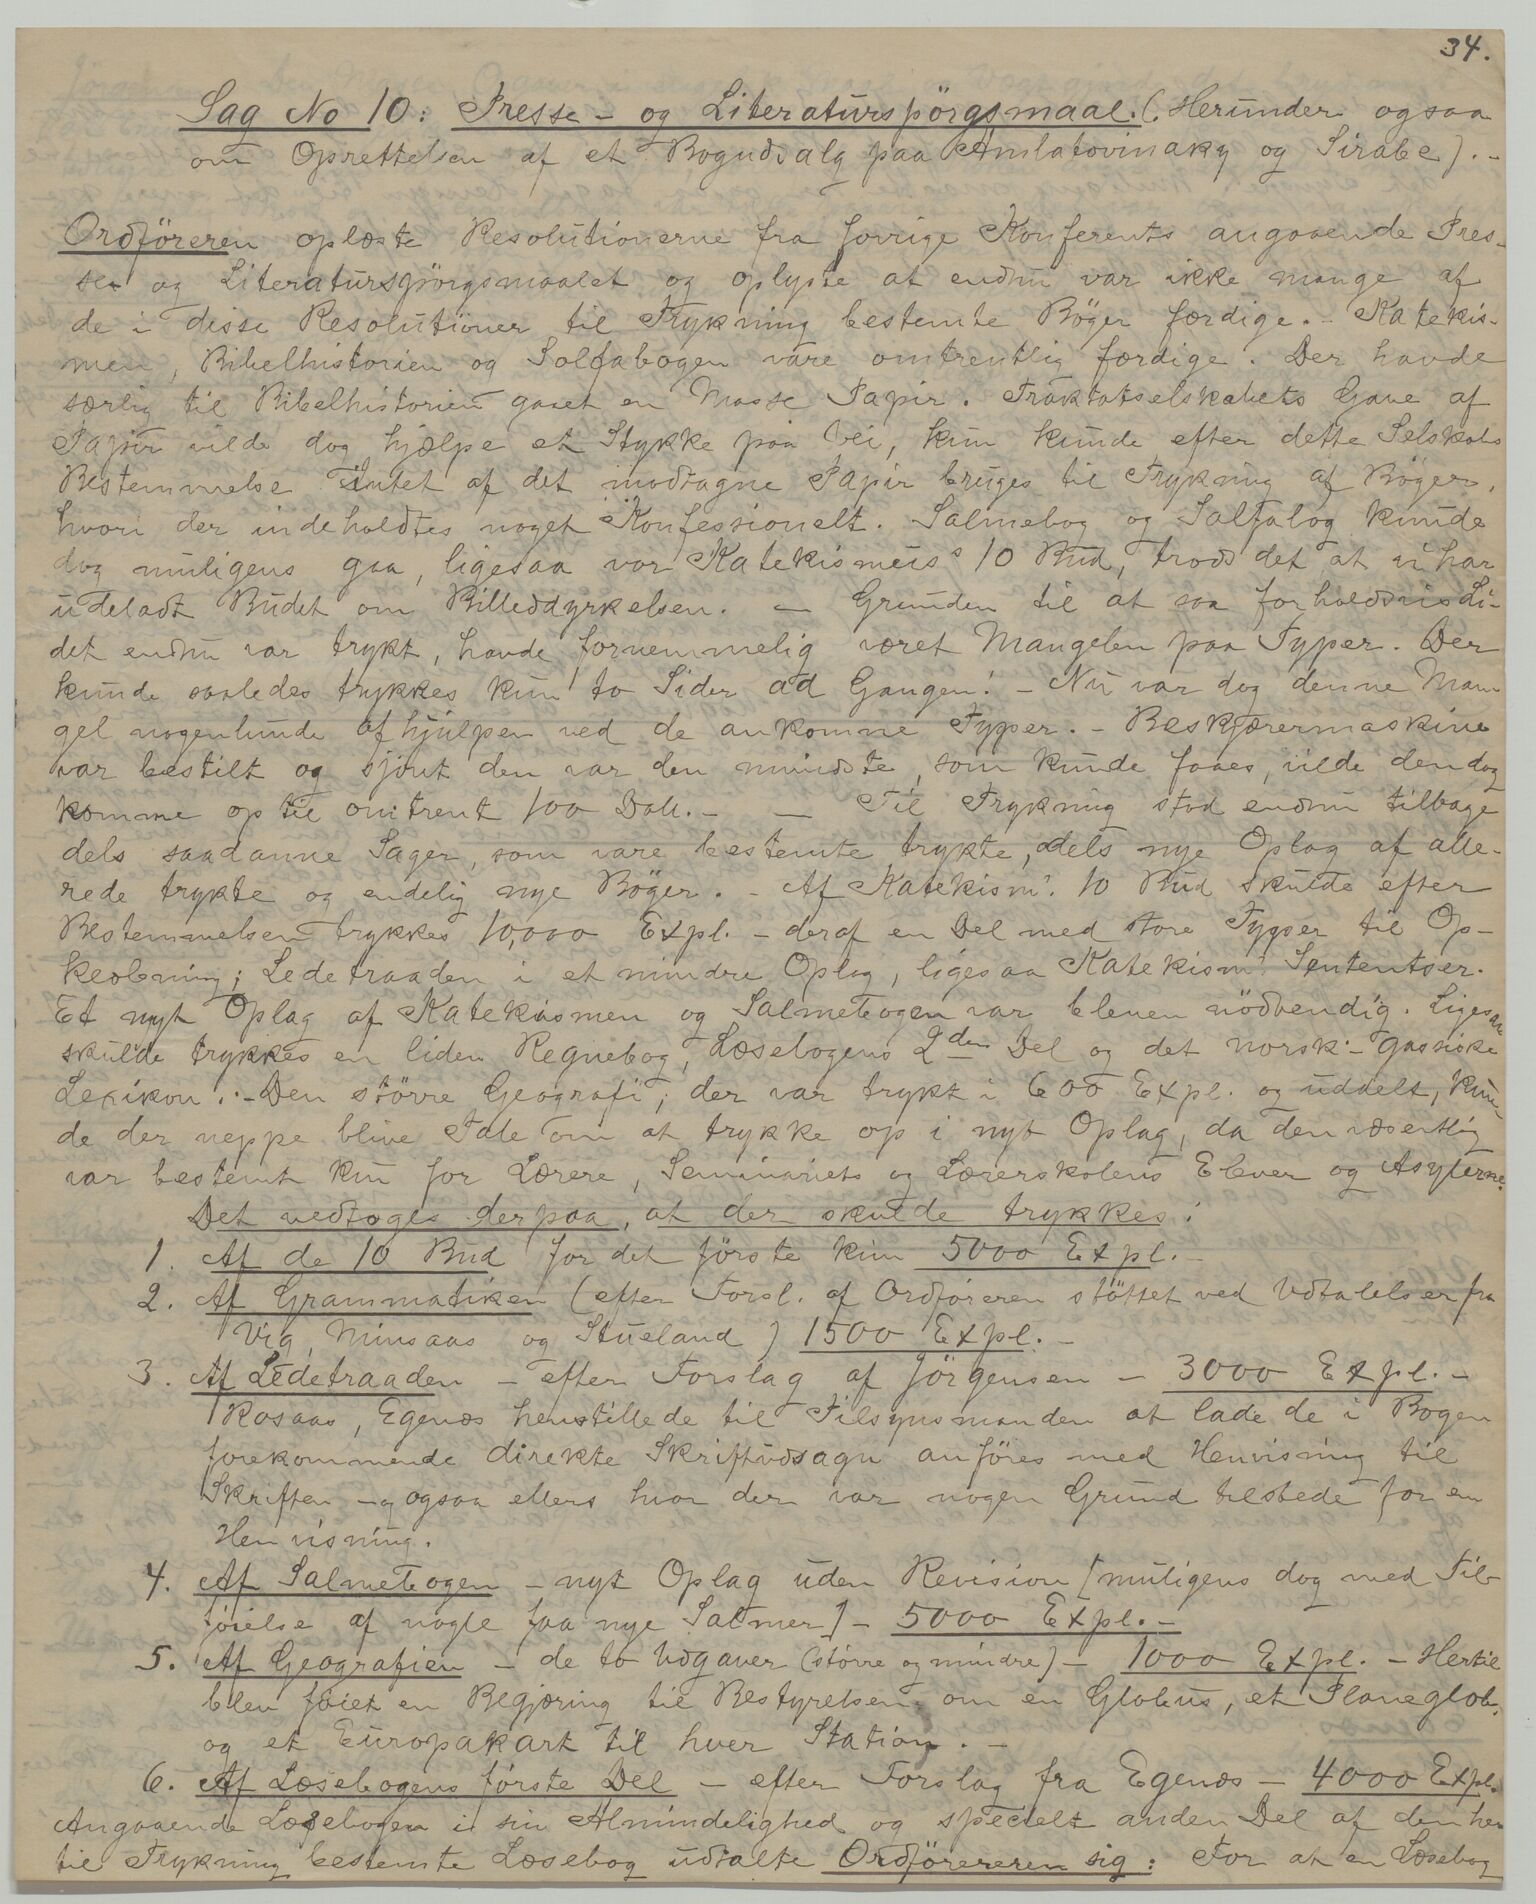 34.
Sag No 10: Presse- og Literaturspörgsmaal. (Herunder ogsaa
om Oprettelsen af et Bogudsalg paa Amlatovinaky og Sirabe). -
Ordföreren oplæste Resolutionerne fra forrige Konferents angaaende Pres-
se- og Literaturspörgsmaalet og oplyste at endnu var ikke mange af
de i disse Resolutioner til Trykning bestemte Böger færdige. - Katekis-
men, Bibelhistorien og Solfabogen vare omtrentlig færdige. Der havde
særlig til Bibelhistorien gaaet en Masse Papir. Traktatselskabets Gave af
Papir vilde dog hjælpe et Stykke paa Vei, kun kunde efter dette Selskabs
Bestemmelse Intet af det modtagne Papir bruges til Trykning af Böger,
hvori der indeholdtes noget Konfessionelt. Salmebog og Solfabog kunde
dog muligens gaa, ligesaa vor Katekismeus's 10 Bud, trods det at vi har
udeladt Budet om Billeddyrkelsen. - Grunden til at saa forholdsvis Li-
det endnu var trykt, havde fornemmelig været Mangelen paa Typer. Der
kunde saaledes trykkes kun to Sider ad Gangen! - Nu var dog denne Man-
gel nogenlunde afhjulpen ved de ankomne Typer. - Beskjærermaskine
var bestilt og sjönt den var den mindste, som kunde faaes, vilde den dog
komme op til omtrent 100 Doll. - - Til Trykning stod endnu tilbage
dels saadanne Sager, som vare bestemte trykte, dels nye Oplag af alle-
rede trykte og endelig nye Böger. - Af Katekism's 10 Bud skulde efter
Bestemmelsen trykkes 10,000 Expl. - deraf en Del med store Typer til Op-
klæbning; Ledetraaden i et mindre Oplag, ligesaa Katekism's Sententser.
Et nyt Oplag af Katekismen og Salmebogen var bleven nödvendig. Ligesaa
skulde trykkes en liden Regnebog, Læsebogens 2den Del og det norsk-gassiske
Lexikon. - Den större Geografi, der var trykt i 600 Expl. og uddelt, kun-
de der neppe blive Tale om at trykke op i nyt Oplag, da den væsentlig
var bestemt kun for Lærere, Seminariets og Lærerskolens Elever og Asylerne.
Det vedtoges derpaa, at der skulde trykkes:
1. Af de 10 Bud for det förste kun 5000 Expl. -
2. Af Grammatiken (efter Forsl. af Ordföreren stöttet ved Udtalelser fra
Vig, Minsaas og Stueland) 1500 Expl. -
3. Af Ledetraaden - efter Forslag af Jörgensen - 3000 Expl. -
Rosaas, Egenæs henstillede til Tilsynsmanden at lade de i Bogen
forekommende direkte Skriftudsagn anföres med Henvisning til
Skriften - og ogsaa ellers hvor der var nogen Grund tilstede for en
Henvisning.
4. Af Salmebogen - nyt Oplag uden Revision [muligens dog med Til-
föielse af nogle faa nye Salmer] - 5000 Expl. -
5. Af Geografien - de to Udgaver (större og mindre) - 1000 Expl. - Hertil
blev föiet en Begjæring til Bestyrelsen om en Globus, et Planeglob.
og et Europakart til hver Station. -
6. Af Læsebogens förste Del - efter Forslag fra Egenæs - 4000 Expl.
Angaaende Læsebogen i sin Almindelighed og specielt anden Del af den her
til Trykning bestemte Læsebog udtalte Ordföreren sig: For at en Læsebog